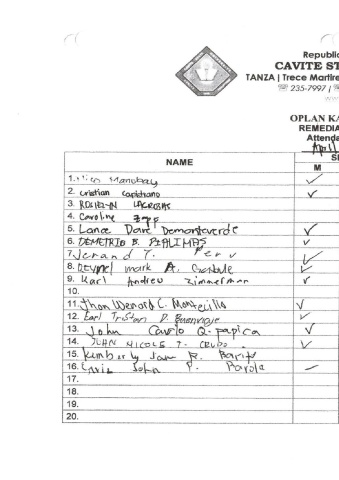 Republi
CAVITE ST
TANZA | Trece Martire
235-7997 |
www
OPLAN KA
REMEDIA
Attenda
April
NAME
M
1. Manobay
2. cristian capistrano
3. ROSHEAN LACROSAS
4. Caroline
5. Lance Dave Demontaverde
6. DEMETRIO B. PIALIMAS
7. Jerand T.
8. mark A.
9. Karl Andreu Zimmerman
10.
11. Jhon Wenard C. Montecillo
12. Earl Tristan D. Buenviaje
13. John Carlo Q. papica
14. JOHN NICOLE T. CRUDO.
15. Kimberly Jam R. Barit
16. John P. Parola
17.
18.
19.
20.